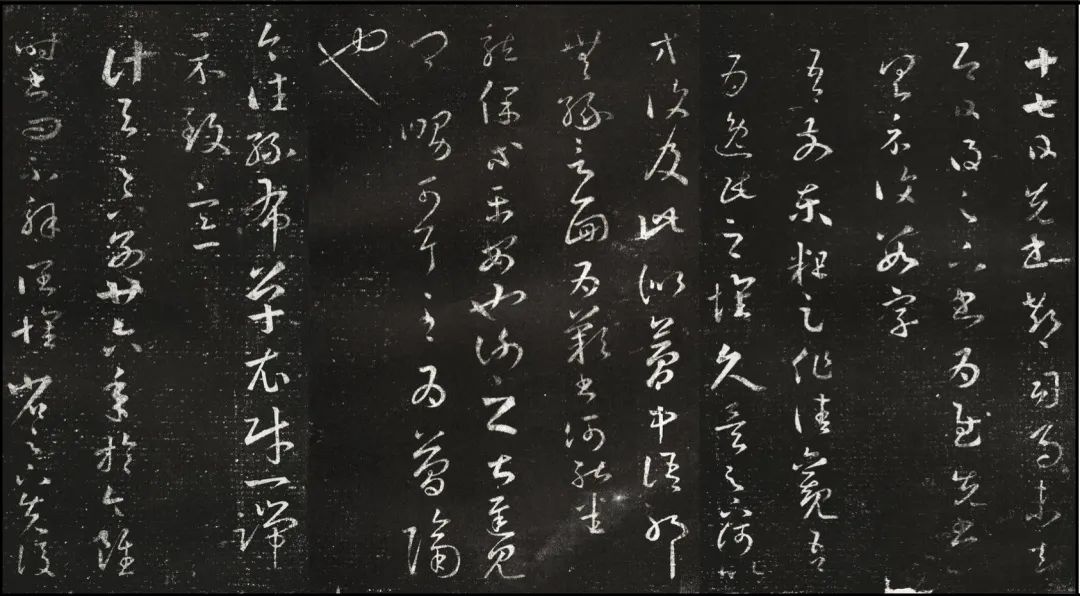 十七日先書郗司馬未去
即日得足下書為慰先書
以具示復數字
吾前東粗足作佳觀吾
為逸民之懷久矣足下何以
等復及此似夢中語耶
無緣言面為歎書何能悉
龍保等平安也謝之甚遲見
卿舅可耳至為簡隔
也
今往絲布單衣財一端
示致意
計與足下別廿六年於今雖
時書問不解闊懷省足下先後